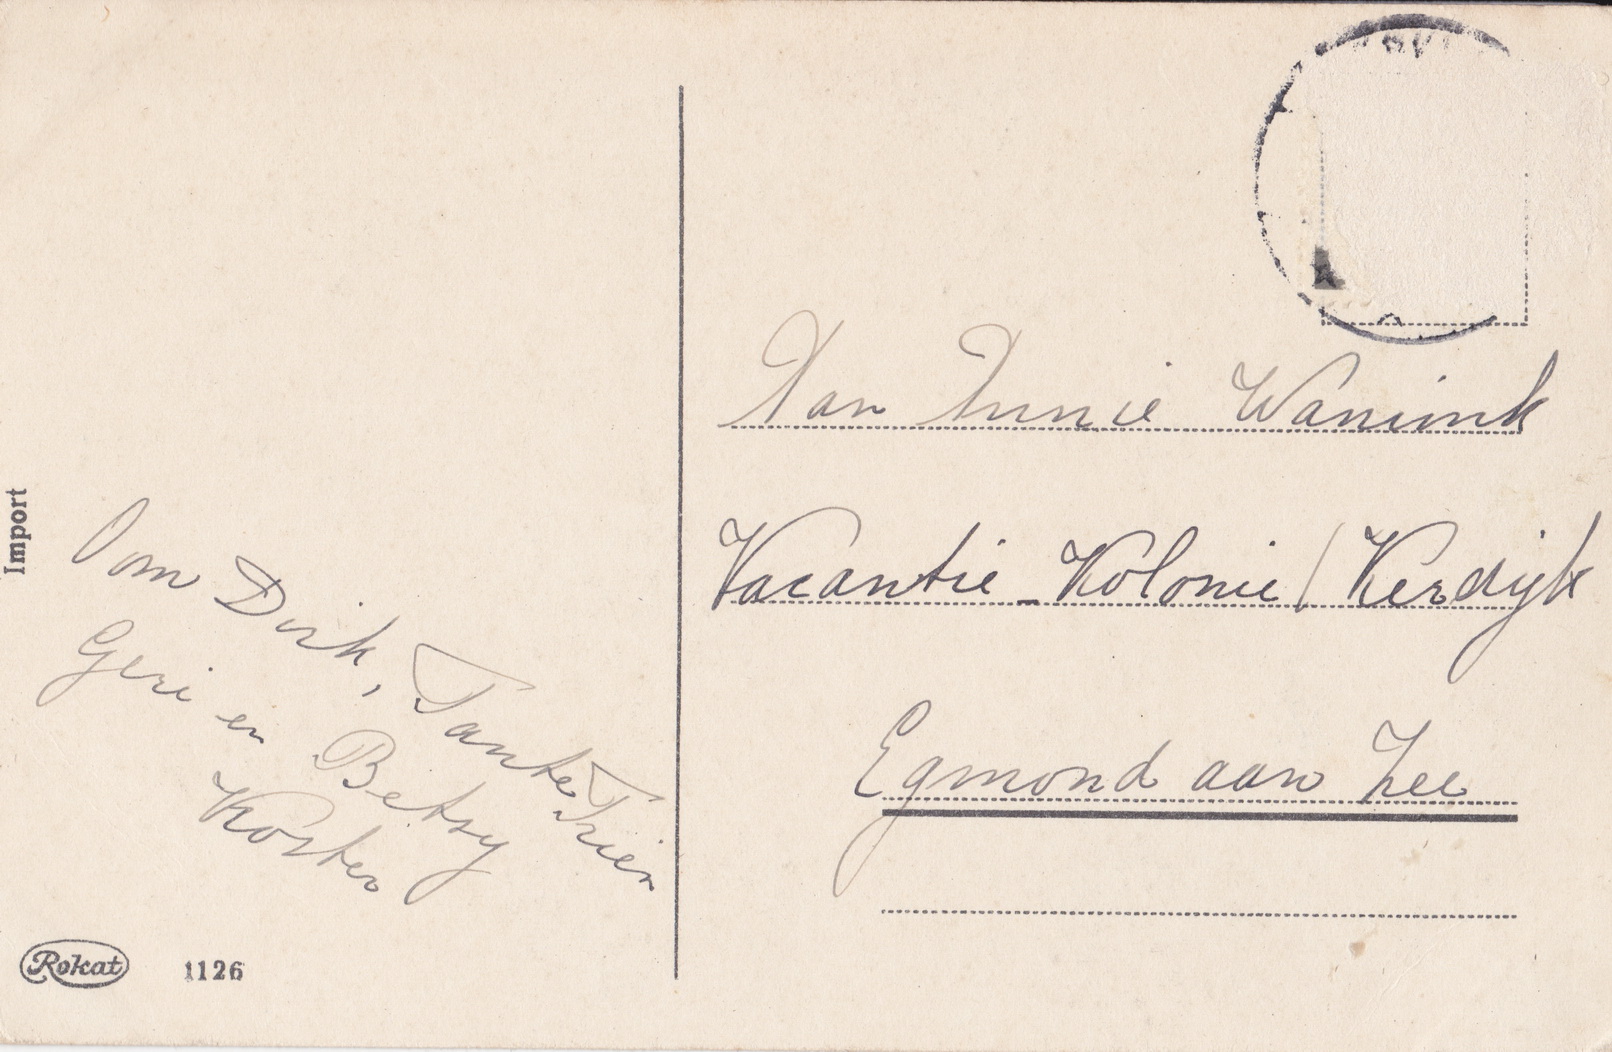 Import
Oom Dirk, Tante Trien
Geri en Betsy
Koster
Rokat
1126
Aan Annie Wanink
Vacantie-Kolonie / Kerdijk
Egmond aan Zee